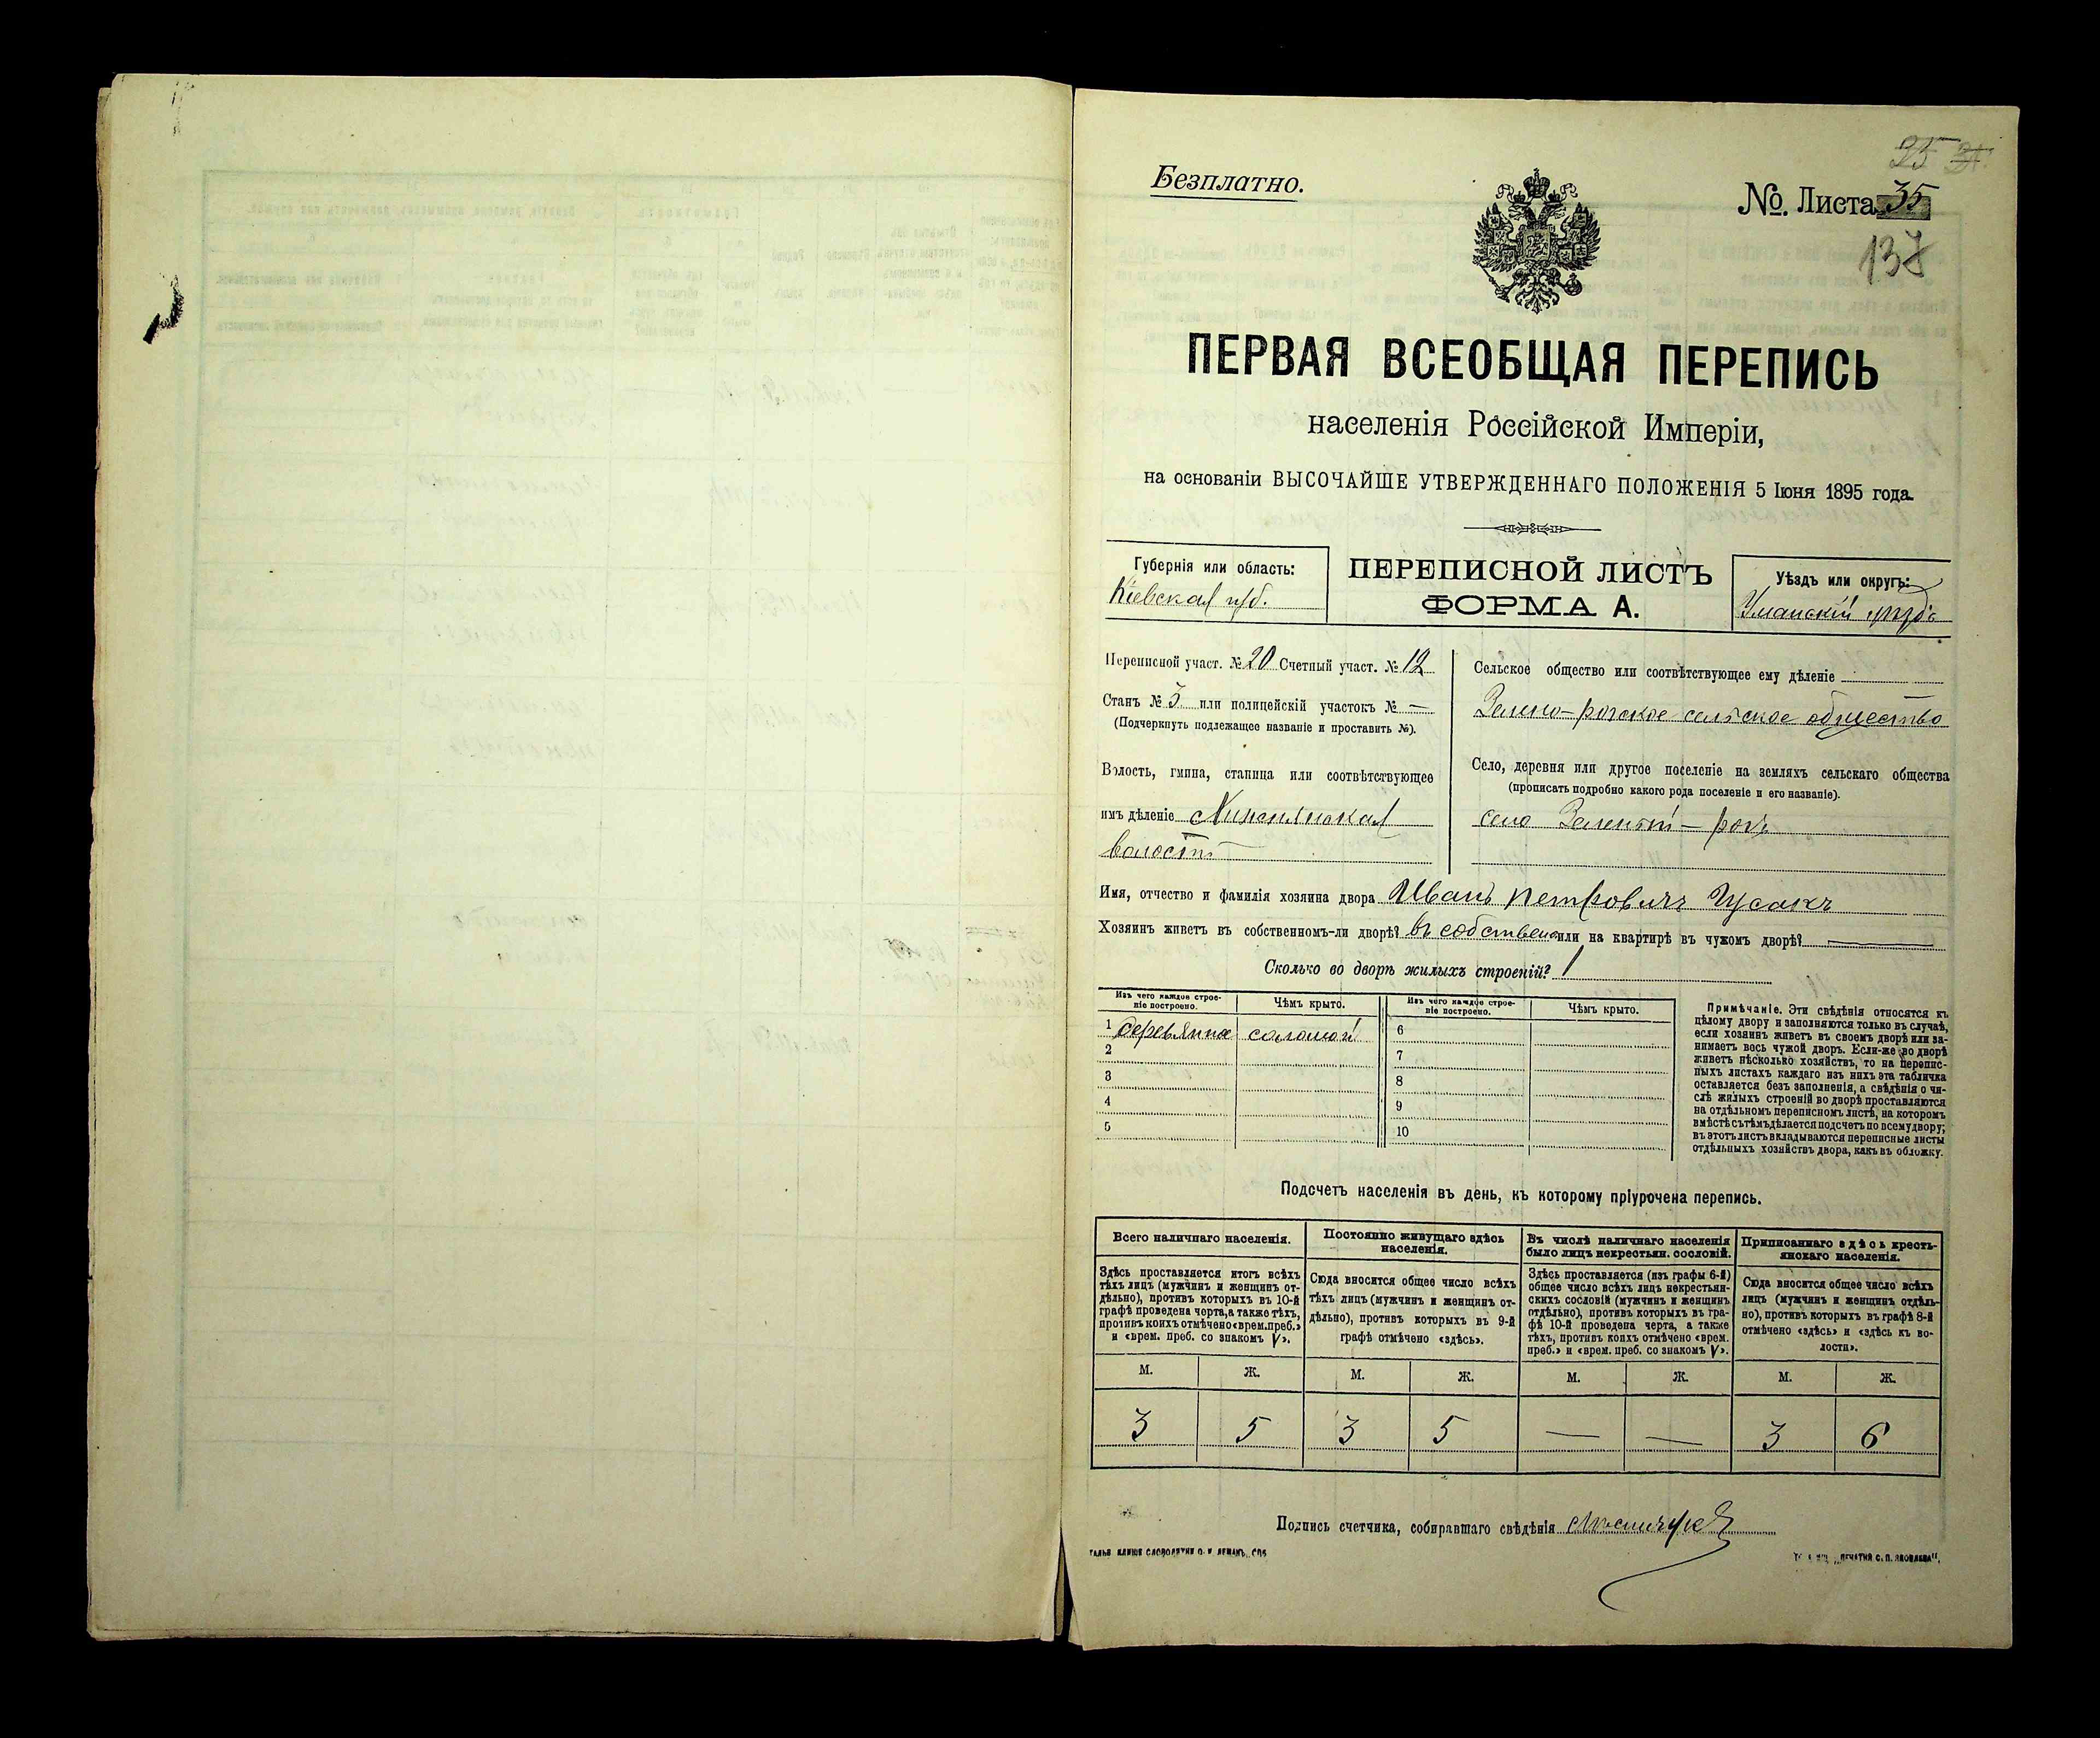 25
Безплатно.
№. Листа 35
137
ПЕРВАЯ ВСЕОБЩАЯ ПЕРЕПИСЬ
населенія Россійской Имперіи,
на основаніи ВЫСОЧАЙШЕ УТВЕРЖДЕННАГО ПОЛОЖЕНІЯ 5 Іюня 1895 года.
Губернія или область:
Кіевская губ.
ПЕРЕПИСНОЙ ЛИСТЪ
ФОРМА А.
Уѣздъ или округъ:
Уманскій уѣздъ
Переписной участ. № 20 Счетный участ. № 12
Станъ № 3 или полицейскій участокъ № —
(Подчеркнуть подлежащее названіе и проставить №).
Волость, гмина, станица или соотвѣтствующее
имъ дѣленіе
волость
Сельское общество или соотвѣтствующее ему дѣленіе
Зелено-рогское сельское общество
Село, деревня или другое поселеніе на земляхъ сельскаго общества
(прописать подробно какого рода поселеніе и его названіе).
село Зеленый-рогъ
Имя, отчество и фамилія хозяина двора Иванъ Петровичъ Гусакъ
Хозяинъ живетъ въ собственномъ-ли дворѣ? въ собствен или на квартирѣ въ чужомъ дворѣ? —
Сколько во дворѣ жилыхъ строеній? 1
Изъ чего каждое строе-
ніе построено.
Чѣмъ крыто.
Изъ чего каждое строе-
ніе построено.
Чѣмъ крыто.
1 деревянное соломой 6
2 7
3 8
4 9
5 10
Примѣчаніе. Эти свѣдѣнія относятся къ
цѣлому двору и заполняются только въ случаѣ,
если хозяинъ живетъ въ своемъ дворѣ или за-
нимаетъ весь чужой дворъ. Если-же во дворѣ
живетъ нѣсколько хозяйствъ, то на перепис-
ныхъ листахъ каждаго изъ нихъ эта табличка
оставляется безъ заполненія, а свѣдѣнія о чи-
слѣ жилыхъ строеній во дворѣ проставляются
на отдѣльномъ переписномъ листѣ, на которомъ
вмѣстѣ съ тѣмъ дѣлается подсчетъ по всему двору;
въ этотъ листъ вкладываются переписные листы
отдѣльныхъ хозяйствъ двора, какъ въ обложку.
Подсчетъ населенія въ день, къ которому пріурочена перепись.
Всего наличнаго населенія.
Здѣсь проставляется итогъ всѣхъ
тѣхъ лицъ (мужчинъ и женщинъ от-
дѣльно), противъ которыхъ въ 10-й
графѣ проведена черта, а также тѣхъ,
противъ коихъ отмѣчено «врем. преб.»
и «врем. преб. со знакомъ V».
Постоянно живущаго здѣсь
населенія.
Сюда вносится общее число всѣхъ
тѣхъ лицъ (мужчинъ и женщинъ от-
дѣльно), противъ которыхъ въ 9-й
графѣ отмѣчено «здѣсь».
Въ числѣ наличнаго населенія
было лицъ некрестьян. сословій.
Здѣсь проставляется (изъ графы 6-й)
общее число всѣхъ лицъ некрестьян-
скихъ сословій (мужчинъ и женщинъ
отдѣльно), противъ которыхъ въ гра-
фѣ 10-й проведена черта, а также
тѣхъ, противъ коихъ отмѣчено «врем.
преб.» и «врем. преб. со знакомъ V».
Приписаннаго здѣсь кресть-
янскаго населенія.
Сюда вносится общее число всѣхъ
лицъ (мужчинъ и женщинъ отдѣль-
но), противъ которыхъ въ графѣ 8-й
отмѣчено «здѣсь» и «здѣсь къ во-
лости».
М. Ж. М. Ж. М. Ж. М. Ж.
3 5 3 5 — — 3 6
Подпись счетчика, собиравшаго свѣдѣнія